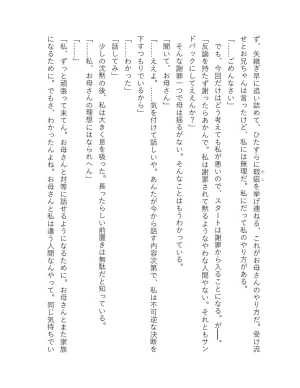 ず、矢継ぎ早に追い詰めて、ひたすらに瑕疵を挙げ連ねる、これがお母さんのやり方だ。受け流
せとお兄ちゃんは言ったけど、私には無理だ。私にだって私のやり方がある。
「……ごめんなさい」
でも、今回だけはどう考えても私が悪いので、スタートは謝罪から入ることになる。が――。
「反論を持たず謝ったらあかんで。私は謝罪されて黙るようなやわな人間やない。それともサン
ドバックにしてええんか？」
そんな謝罪一つで母は揺るがない。そんなことはもうわかっている。
「聞いて、お母さん」
「……ええよ。でも、気を付けて話しいや。あんたが今から話す内容次第で、私は不可逆な決断を
下すつもりでいるから」
「……わかった」
「話してみ」
少しの沈黙の後、私は大きく息を吸った。長ったらしい前置きは無駄だと知っている。
「……私、お母さんの理想にはなられへん」
「……」
「私、ずっと頑張って来てん。お母さんと対等に話せるようになるために。お母さんとまた家族
になるために。でもさ、わかったんよね。お母さんと私は違う人間なんやって。同じ気持ちでい